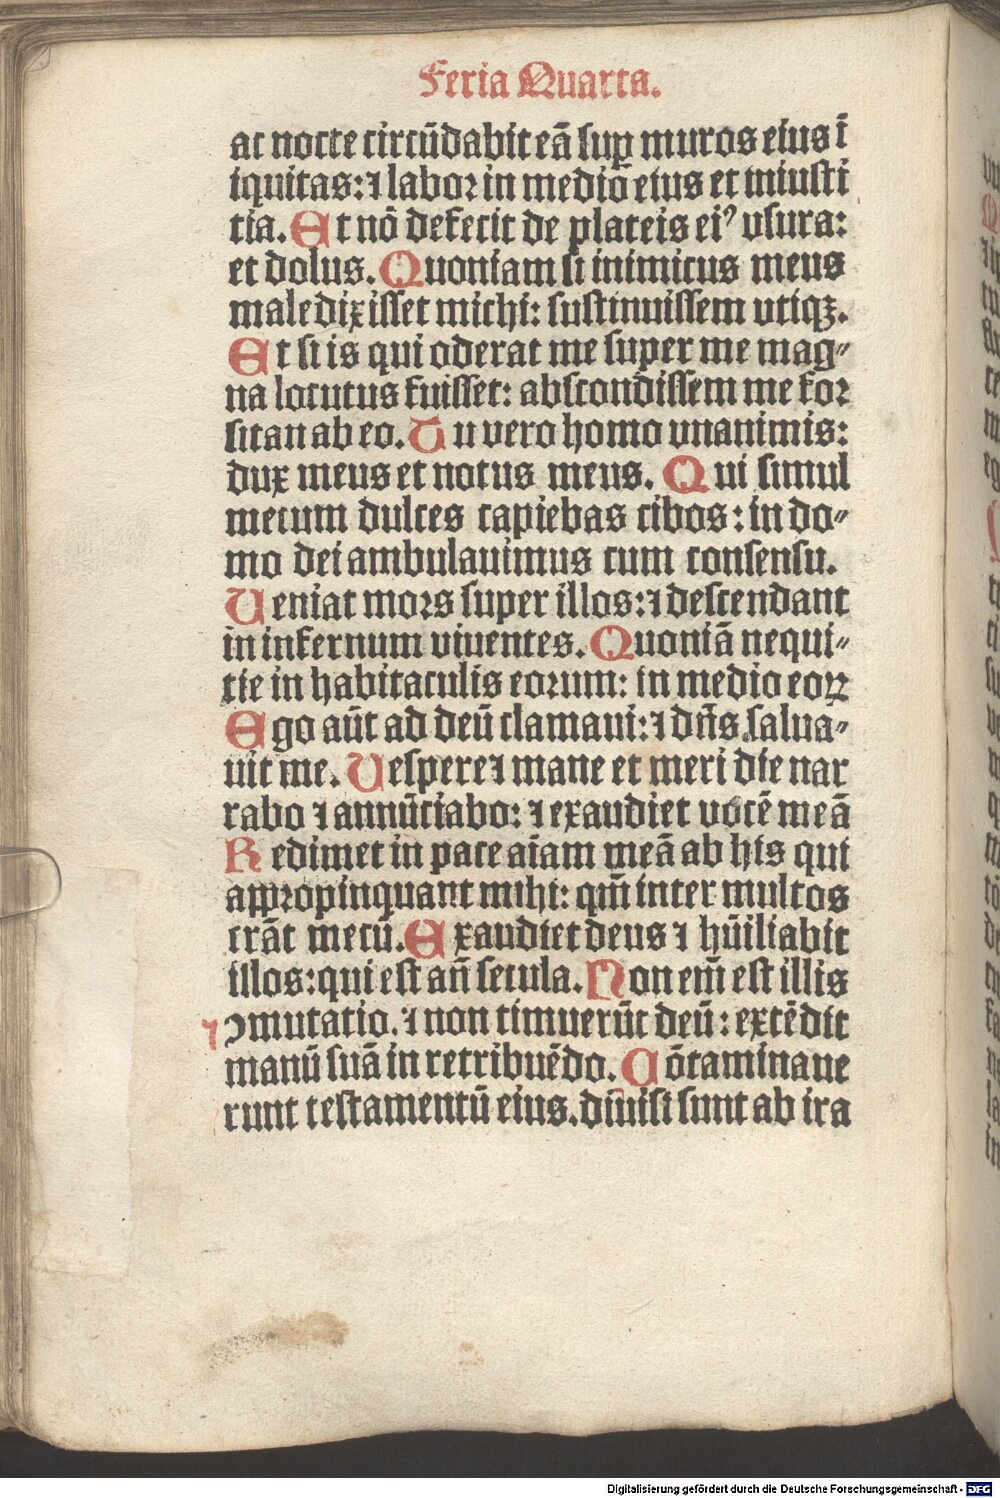 Feria Quarta.
ac nocte circūdabit eā suꝑ muros eius ī
iquitas: ⁊ labor in mediō eius et iniusti
tia. Et nō defecit de plateis eiꝰ vsura:
et dolus. Quoniam si inimicus meus
maledixisset michi: sustinuissem vtiqꝫ.
Et si is qui oderat me super me mag⸗
na locutus fuisset: abscondissem me for
sitan ab eo. Tu vero homo vnanimis:
dux meus et notus meus. Qui simul
mecum dulces capiebas cibos: in do⸗
mo dei ambulauimus cum consensu.
Ueniat mors super illos: ⁊ descendant
in infernum viuentes. Quoniā nequi⸗
tie in habitaculis eorum: in medio eoꝝ
Ego aūt ad deū clamaui: ⁊ dn̄s salua⸗
uit me. Uespere ⁊ mane et meri die nar
rabo ⁊ annūciabo: ⁊ exaudiet vocē meā
Redimet in pace aīam meā ab his qui
appropinquant mihi: qm̄ inter multos
erāt mecū. Exaudiet deus ⁊ hūiliabit
illos: qui est an̄ secula. Non em̄ est illis
ꝯmutatio. ⁊ non timuerūt deū: extēdit
manū suā in retribuēdo. Cōtaminaue
runt testamentū eius. diuisi sunt ab ira
Digitalisierung gefördert durch die Deutsche Forschungsgemeinschaft - DFG